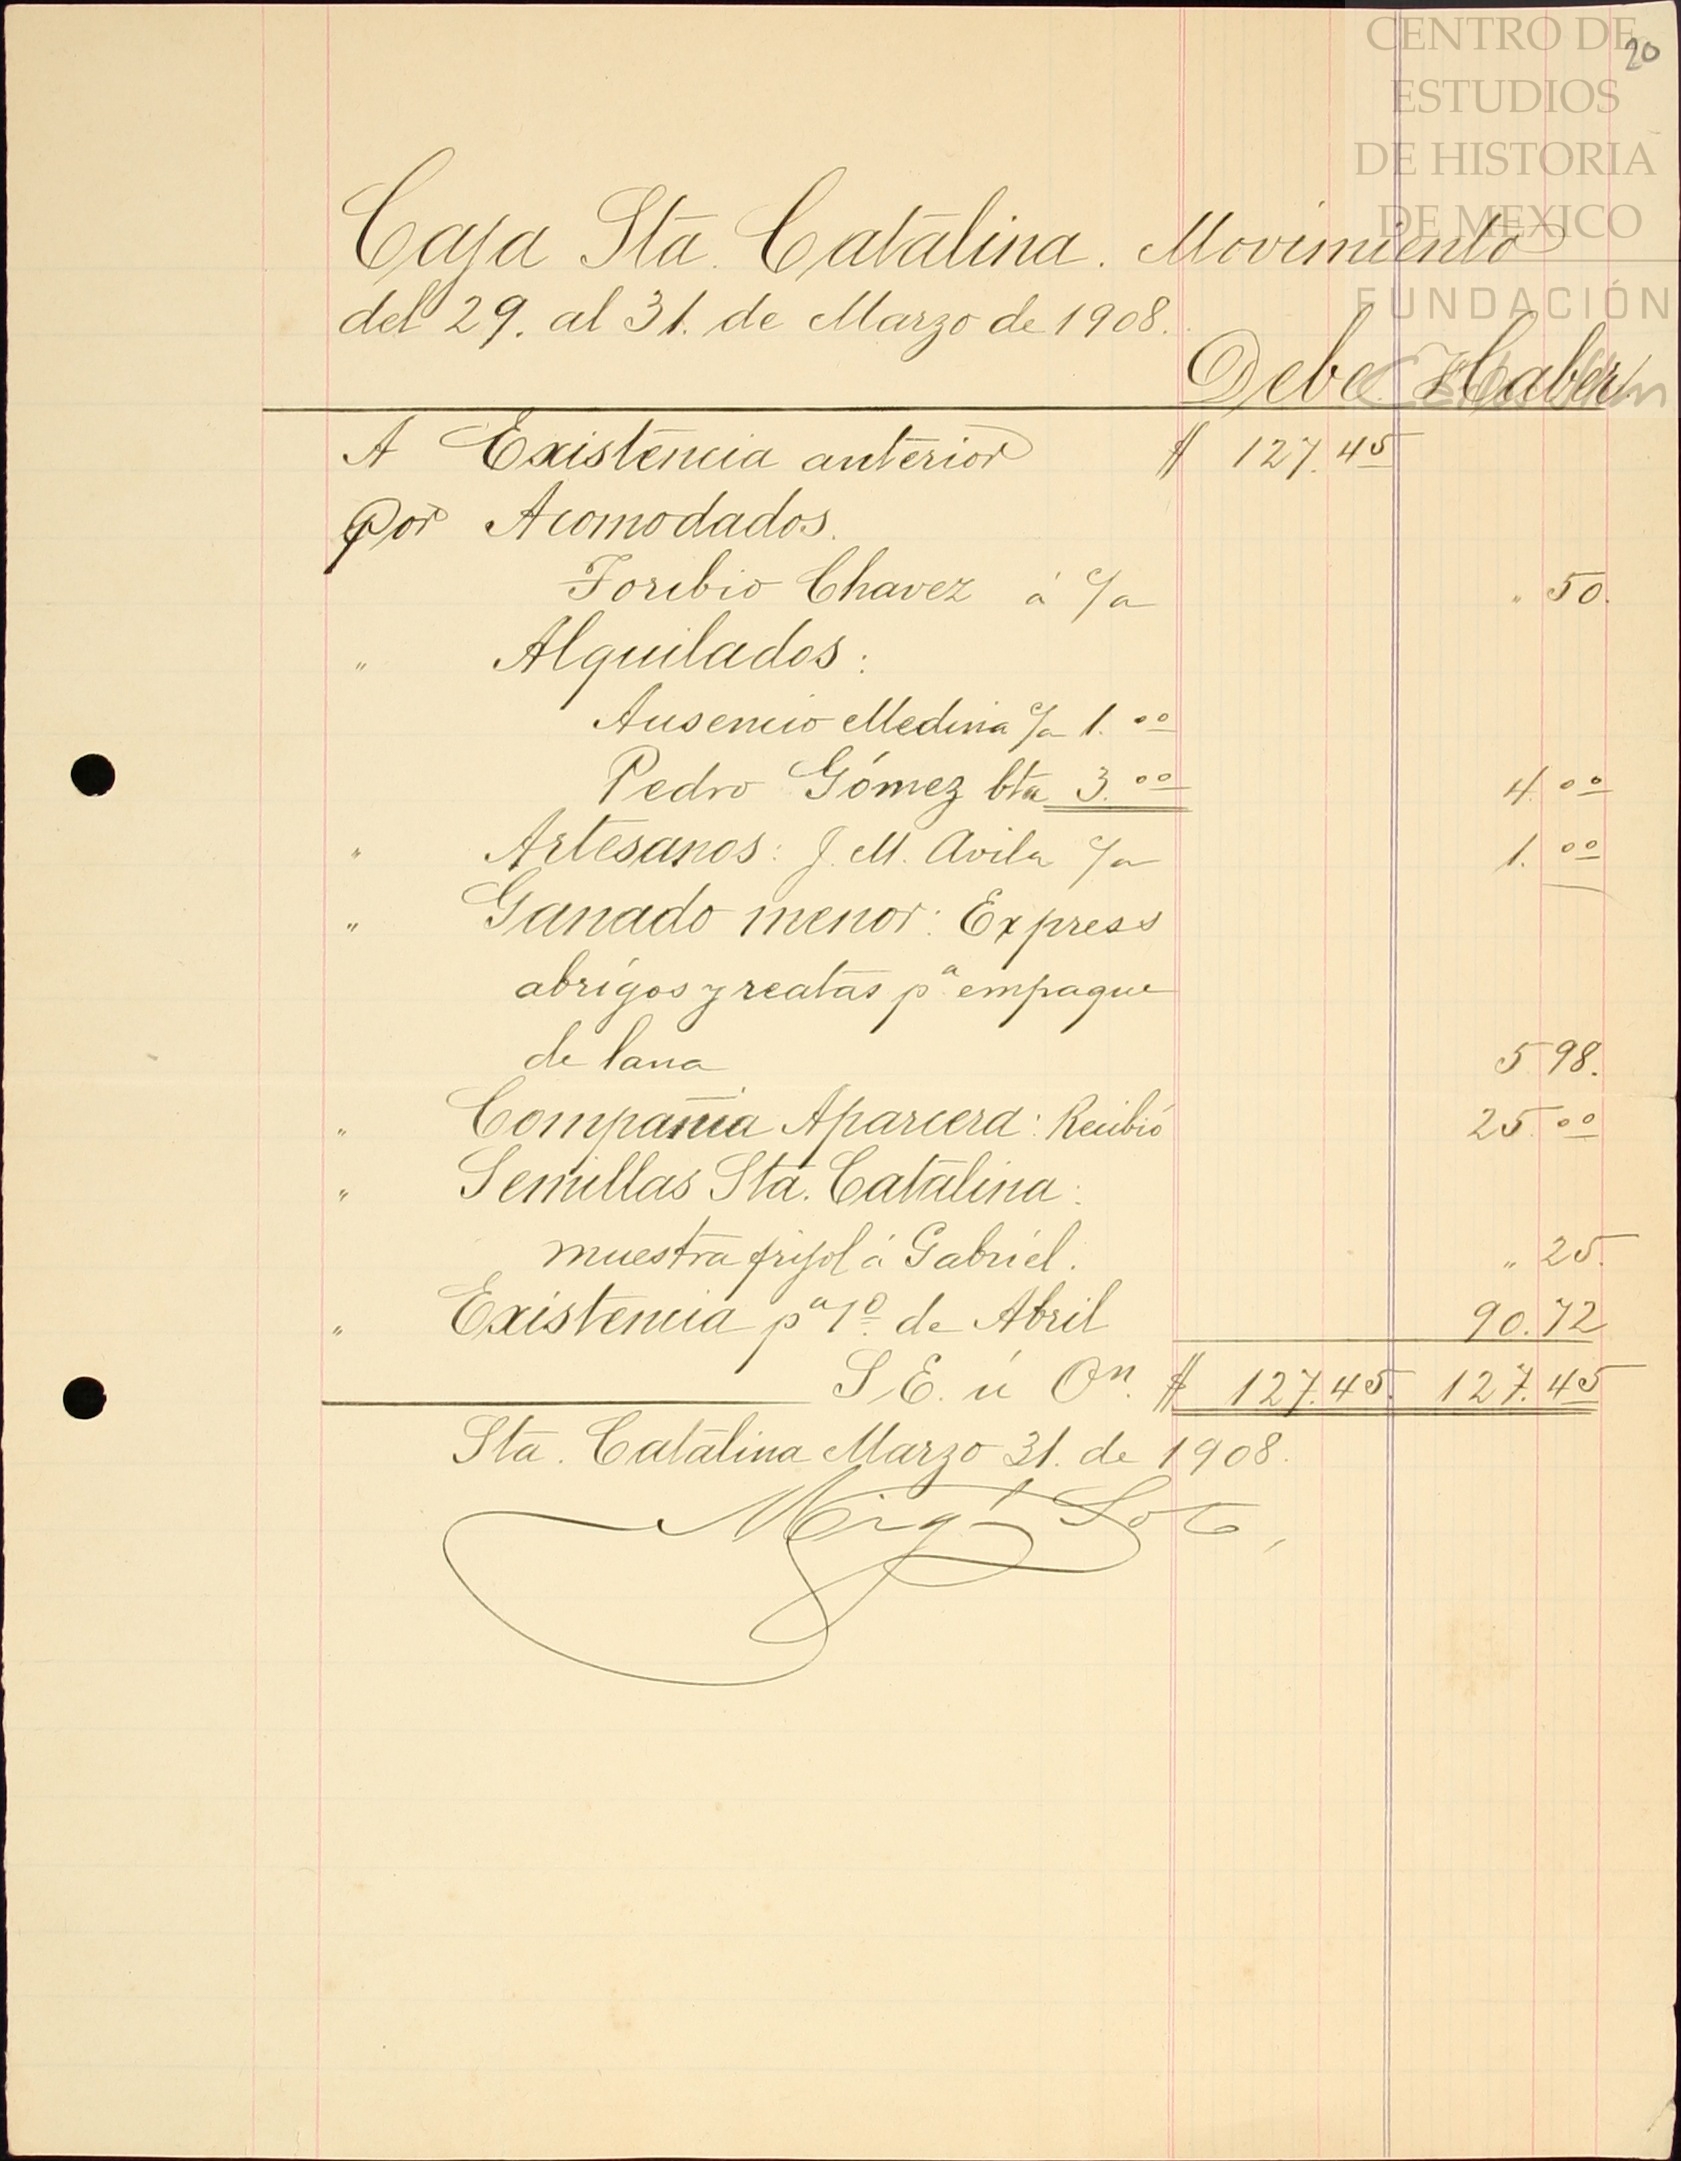 CENTRO DE
ESTUDIOS
DE HISTORIA
DE MEXICO
FUNDACIÓN
20
Caja Sta. Catalina. Movimiento
del 29. al 31. de Marzo de 1908.
Debe. Haber.
A Existencia anterior $ 127.45
Por Acomodados.
Toribio Chavez á c/a " 50.
" Alquilados:
Ausencio Medina c/a 1.00
Pedro Gómez bta 3.00 4.00
" Artesanos: J. M. Avila c/a 1.00
" Ganado menor: Express
abrigos y reatas pa. empaque
de lana 5.98.
" Compañia Aparcera: Recibió 25.00
" Semillas Sta. Catalina:
muestra frijol á Gabriel. " 25.
" Existencia pa 1o. de Abril 90.72
S E. ú On. $ 127.45. 127.45
Sta. Catalina Marzo 31. de 1908.
Migl Soto,